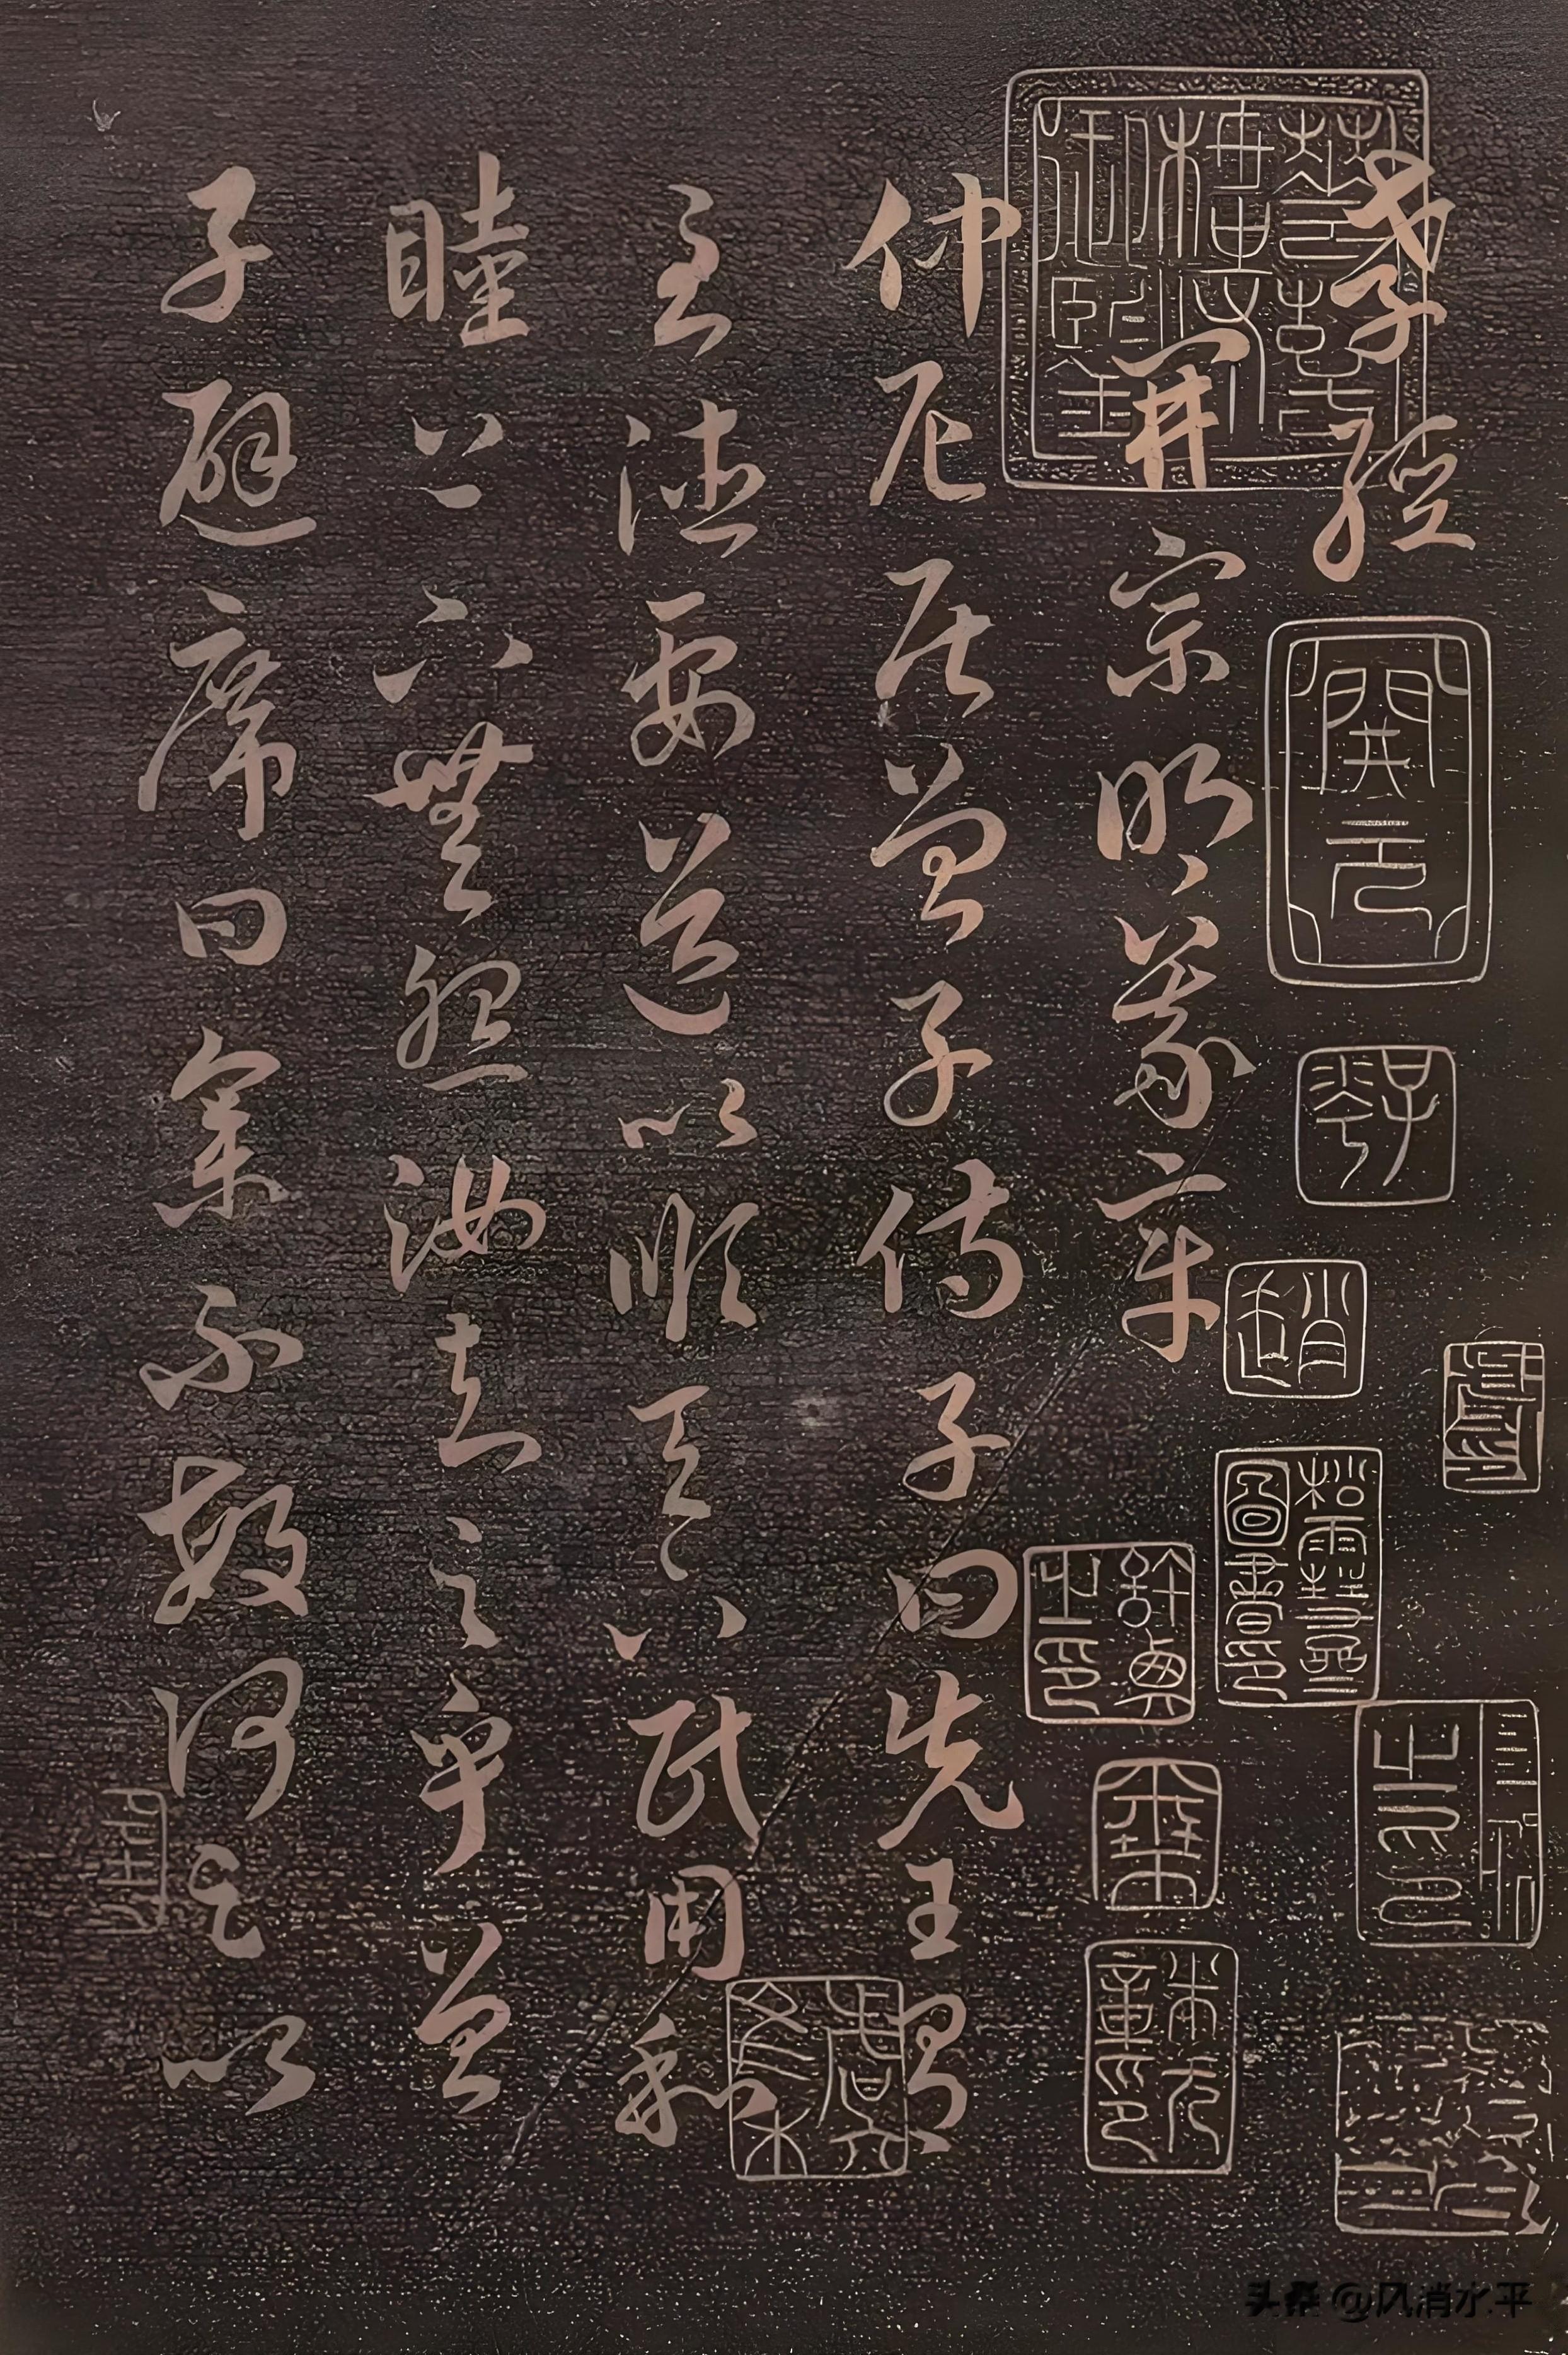 孝經
開宗明義章
仲尼居曾子侍子曰先王有
至德要道以順天下民用和
睦上下無怨汝知之乎曾
子避席曰參不敏何足以
開元
趙
头条 @风消水平